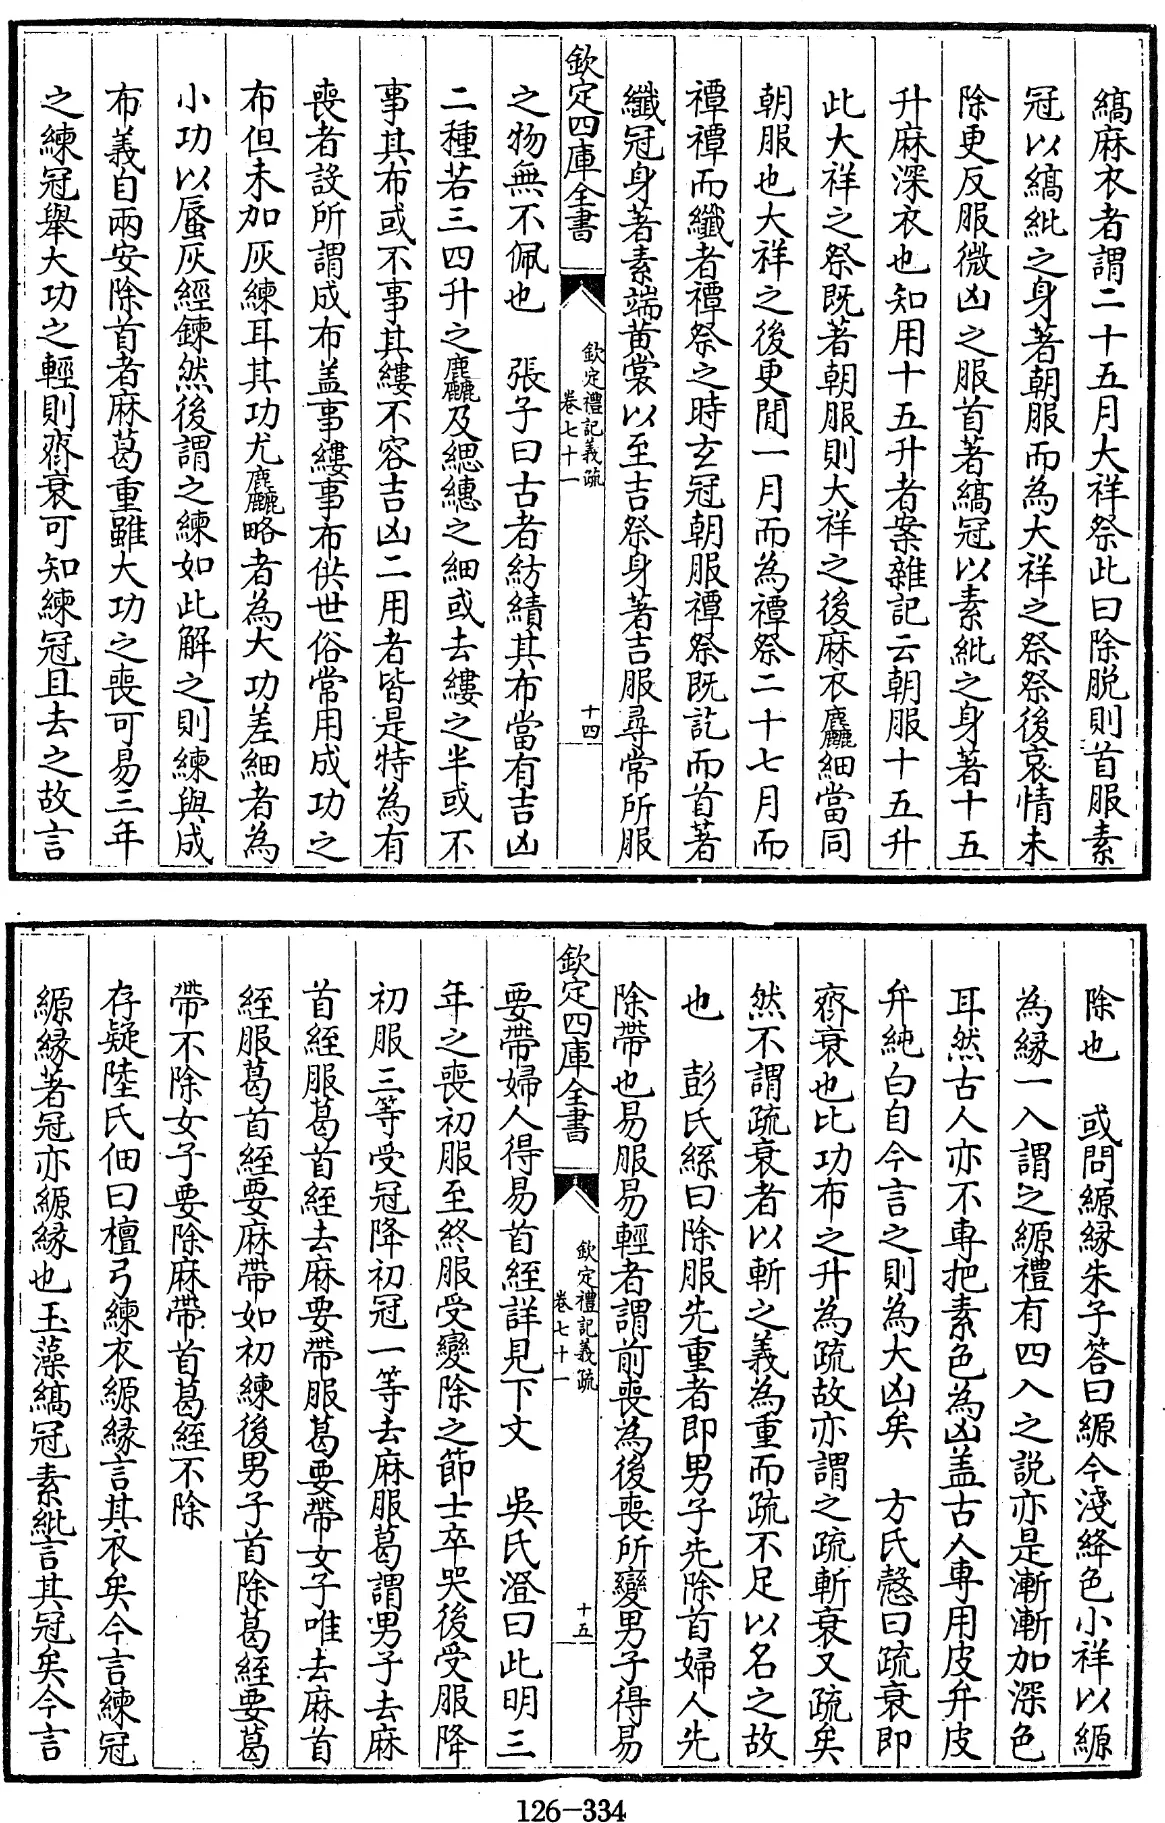 縞麻衣者謂二十五月大祥祭此日除脱則首服素
冠以縞紕之身著朝服而為大祥之祭祭後哀情未
除更反服微凶之服首著縞冠以素紕之身著十五
升麻深衣也知用十五升者案雜記云朝服十五升
此大祥之祭既著朝服則大祥之後麻衣麤細當同
朝服也大祥之後更間一月而為禫祭二十七月而
禫禫而纖者禫祭之時玄冠朝服禫祭既訖而首著
纖冠身著素端黄裳以至吉祭身著吉服尋常所服
欽定四庫全書
欽定禮記義疏
卷七十一
十四
之物無不佩也　張子曰古者紡績其布當有吉凶
二種若三四升之麤及緦繐之細或去縷之半或不
事其布或不事其縷不容吉凶二用者皆是特為有
喪者設所謂成布盖事縷事布供世俗常用成功之
布但未加灰練耳其功尤麤略者為大功差細者為
小功以蜃灰經鍊然後謂之練如此解之則練與成
布義自兩安除首者麻葛重雖大功之喪可易三年
之練冠舉大功之輕則齊衰可知練冠且去之故言
除也　或問縓縁朱子答曰縓今淺絳色小祥以縓
為縁一入謂之縓禮有四入之説亦是漸漸加深色
耳然古人亦不専把素色為凶盖古人専用皮弁皮
弁純白自今言之則為大凶矣　方氏慤曰疏衰即
齊衰也比功布之升為疏故亦謂之疏斬衰又疏矣
然不謂疏衰者以斬之義為重而疏不足以名之故
也　彭氏絲曰除服先重者即男子先除首婦人先
除帶也易服易輕者謂前喪為後喪所變男子得易
欽定四庫全書
欽定禮記義疏
卷七十一
十五
要帶婦人得易首絰詳見下文　吳氏澄曰此明三
年之喪初服至終服受變除之節士卒哭後受服降
初服三等受冠降初冠一等去麻服葛謂男子去麻
首絰服葛首絰去麻要帶服葛要帶女子唯去麻首
絰服葛首絰要麻帶如初練後男子首除葛絰要葛
帶不除女子要除麻帶首葛絰不除
存疑陸氏佃曰檀弓練衣縓縁言其衣矣今言練冠
縓縁著冠亦縓縁也玉藻縞冠素紕言其冠矣今言
126-334